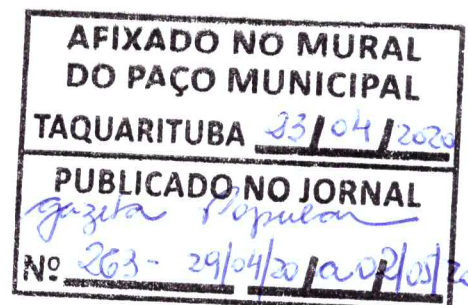 AFIXADO NO MURAL
DO PAÇO MUNICIPAL
TAQUARITUBA 23/04/2020
PUBLICADO NO JORNAL
gazeta Popular
Nº 263 - 29/04/20 a 02/05/20